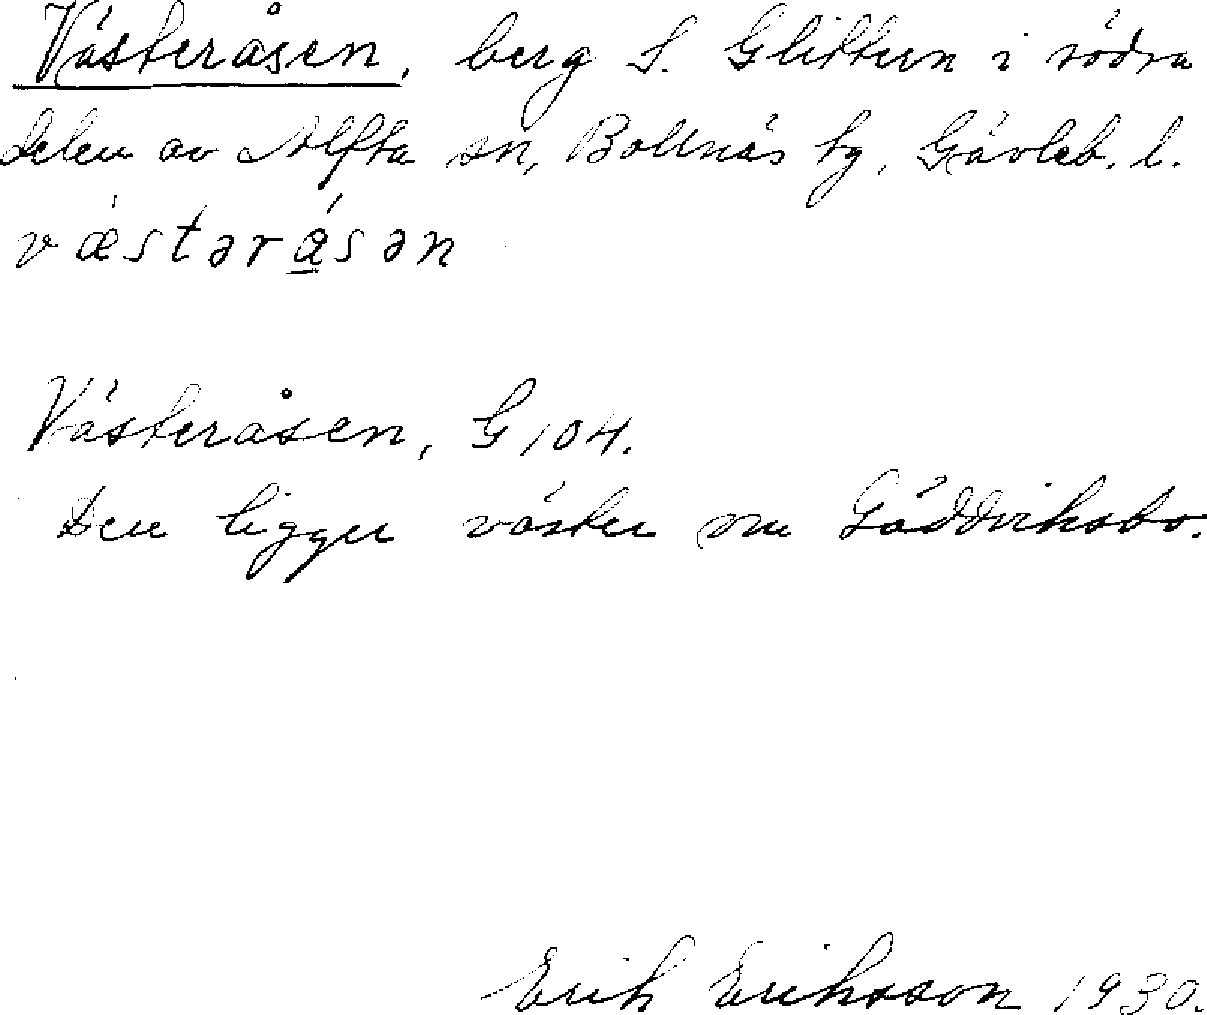 Västeråsen, berg S. Glittern i södra
delen av Alfta sn, Bollnäs tg, Gävleb. l.
væ̀stərǻ̲sən
Västeråsen, G 104.
Den ligger väster om Gäddviksbo.
Erik Eriksson 1930.